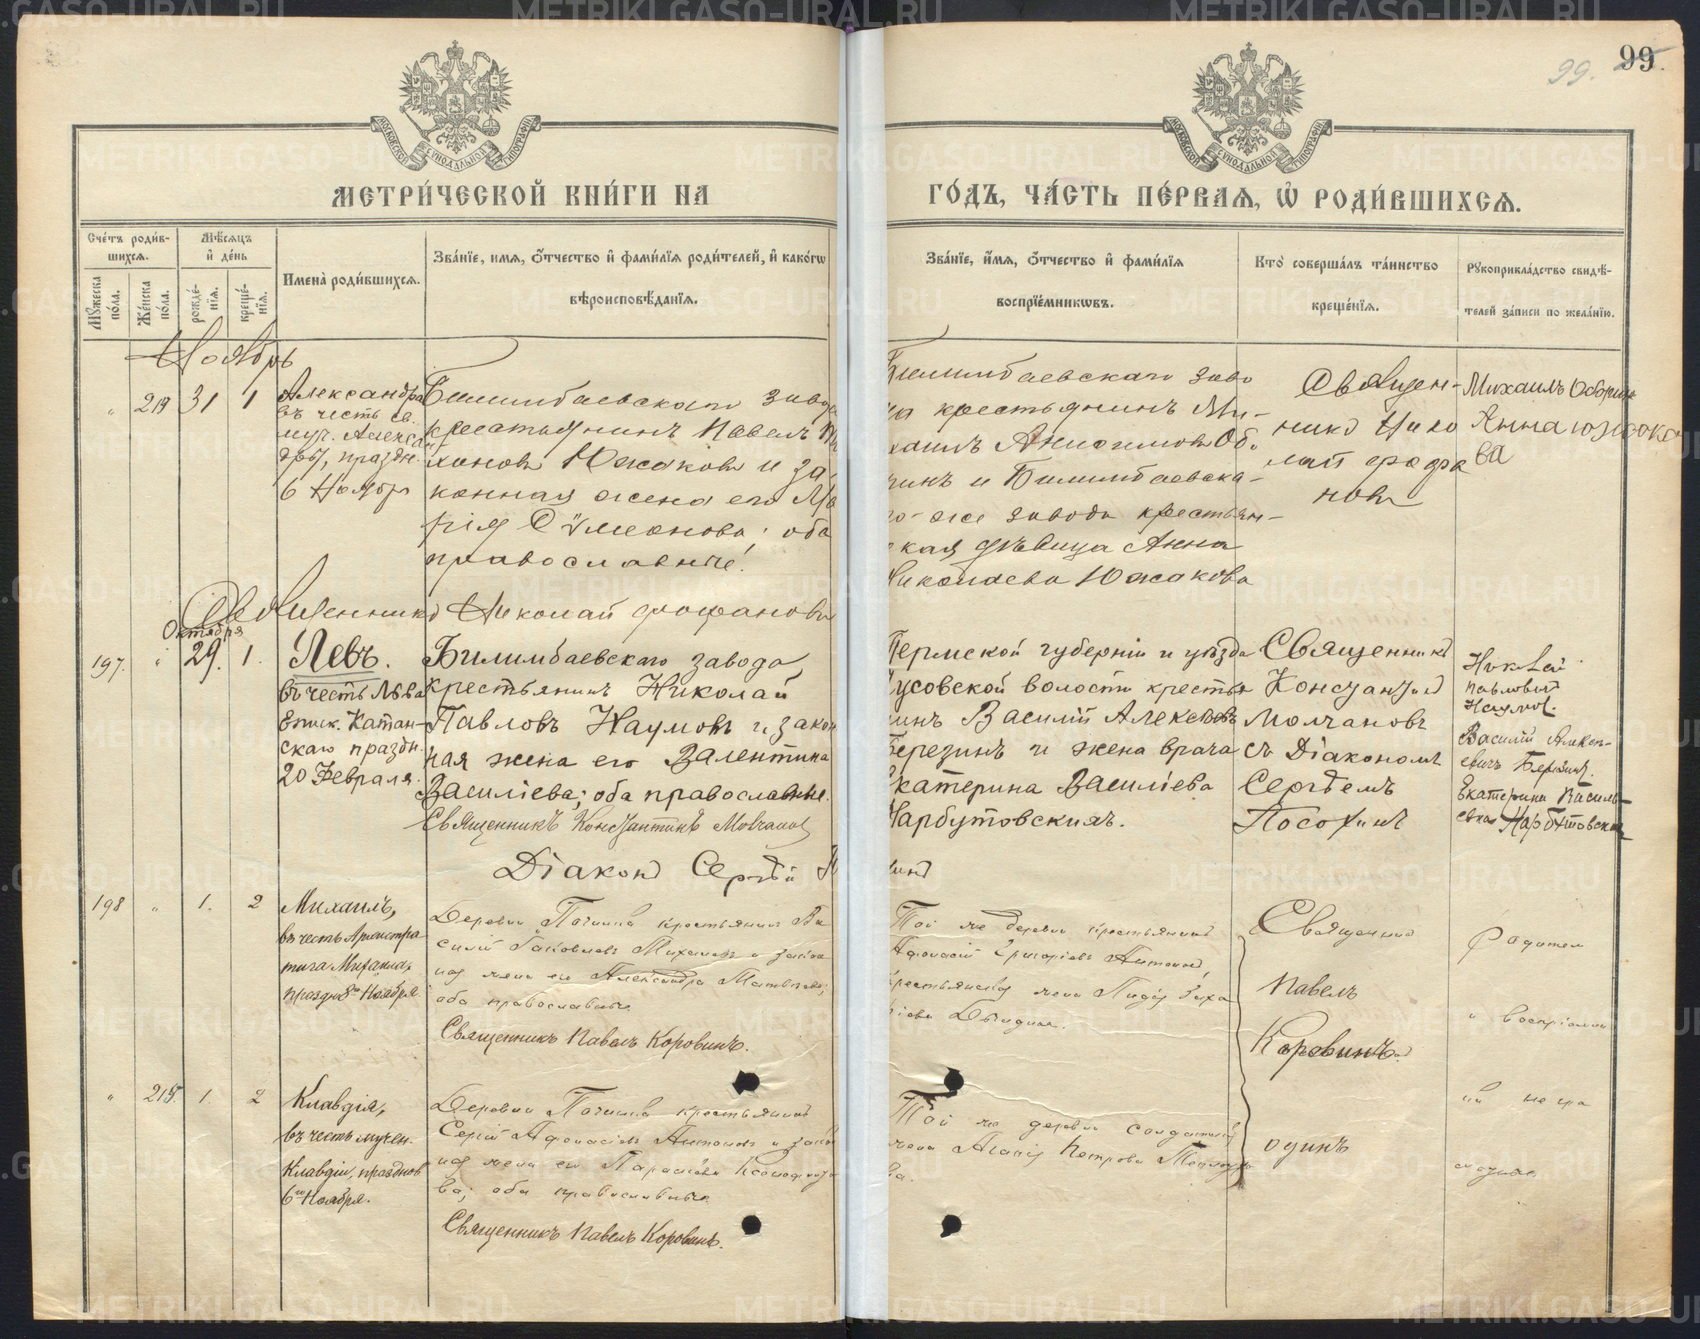 99.
99.
МЕТРИ́ЧЕСКОЙ КНИ́ГИ НА
ГО́ДЪ, ЧА́СТЬ ПЕ́РВАЯ, Ѽ РОДИ́ВШИХСѦ.
МОСКОВСКОЙ СѴНОДАЛЬНОЙ ТИПОГРАФІИ
МОСКОВСКОЙ СѴНОДАЛЬНОЙ ТИПОГРАФІИ
Сче́тъ роди́в-
шихсѧ.
Мꙋ́жеска по́ла.
Же́нска по́ла.
Мѣ́сѧцъ
и҆ де́нь
рожде́-нїѧ.
креще́-нїѧ.
Имена̀ роди́вшихсѧ.
Зва́нїе, имѧ, ѻ҆́тчество и҆ фами́лїѧ роди́телей, и҆ како́гѡ
вѣроисповѣ́данїѧ.
Зва́нїе, и҆́мѧ, ѻ҆́тчество и҆ фами́лїѧ
воспрїе́мникѡвъ.
Кто̀ соверша́лъ та́инство
креще́нїѧ.
Рꙋкоприкла́дство свидѣ́-
телей за́писи по жела́нїю.
Ноябрь
" 31 1
Александра
въ честь св.
муч. Алекса
дры, праздн.
6 Ноябр
Билимбаевскаго завода
крестьянинъ Павелъ
хоновъ Южаковъ и за
конная жена его Ма
рія Сѵмеонова; оба
православные.
Билимбаевскаго заво
да крестьянинъ Ми-
хаилъ Анисимовъ Обо
ринъ и Билимбаевска-
го-же завода крестьян-
ская дѣвица Анна
Николаева Южакова
Священ-
никъ Нико
лай Фофа
новъ
Михаилъ Оборин
Анна Южако
ва
Священникъ Николай Фофановъ
Октября
197. " 29. 1.
Левъ.
въ честь Льва
Епис. Катан-
скаго праздн.
20 Февраля.
Билимбаевскаго завода
крестьянинъ Николай
Павловъ Наумовъ и закон
ная жена его Валентина
Васильева; оба православные.
Священникъ Константинъ Молчановъ
Діаконъ Сергѣй
Пермской губерніи и уѣзда
Чусовской волости крестья
нинъ Василій Алексѣевъ
Березинъ и жена врача
Екатерина Васильева
Нарбутовскихъ.
Священникъ
Константинъ
Молчановъ
съ Діакономъ
Сергѣемъ
Посохинъ
Николай
Павловичъ
Наумов.
Василій Алексѣ-
евичъ Березинъ.
Екатерина Василь-
евна Нарбутовская
198 " 1. 2
Михаилъ,
въ честь Архистра
тига Михаила,
праздн 8го Ноября
Деревни Починка крестьянинъ Ва
силій Яковлевъ Михалевъ и закон
ная жена его Александра Матвѣева;
оба православные.
Священникъ Павелъ Коровинъ.
Той же деревни крестьянинъ
Афанасій Григорьевъ Антоновъ,
крестьянская жена Лидія Заха
Священникъ
Павелъ
Коровинъ.
Родители
и воспріемни
ки негра
мотные.
" 215. 1. 2
Клавдія,
въ честь мучен.
Клавдіи, празднов
6го Ноября.
Деревни Починка крестьянинъ
Сергій Афанасьевъ Антоновъ и закон
ная жена его Параскева Ксенофонто
ва; оба православные.
Священникъ Павелъ Коровинъ.
Той же деревни солдатская
жена Агапія Петрова
одинъ